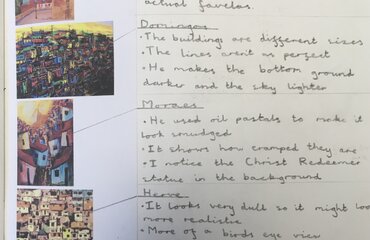 actual favelas.
Domingos
• The buildings are different sizes
• The lines arent as perfect
• He makes the bottom ground
darker and the sky lighter
Moraes
• He used oil pastals to make it
look smudged
• It shows how cramped they are
• I notice the Christ Redeemer
statue in the background
Herve
• It looks very dull so it might loo
more realistic
• More of a birds eye view